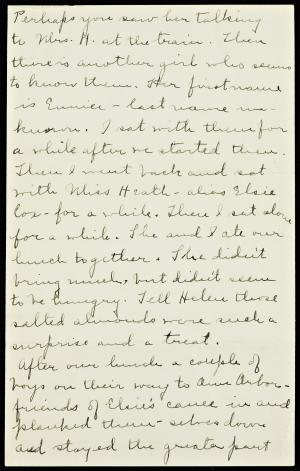 Perhaps you saw her talking
to Mrs. H. at the train. Then
there is another girl who seems
to know them. Her first name
is Eunice - last name un-
known. I sat with them for
a while after we started then.
Then I went back and sat
with Miss Heath - alias Elsie
Cox - for a while. Then I sat alone
for a while. She and I ate our
lunch together. She didn't
bring much, but didn't seem
to be hungry. Tell Helen those
salted almonds were such a
surprise and a treat.
After our lunch a couple of
boys on their way to Ann Arbor -
friends of Elsie's came in and
planked them - selves down
and stayed the greater part